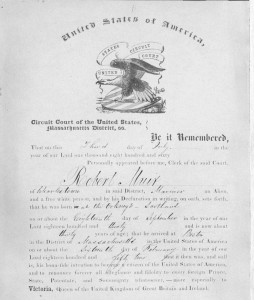 United States of America,
UNITED STATES CIRCUIT COURT
Circuit Court of the United States,
Massachusetts District, ss.
Be it Remembered,
That on this Third day of July in the
year of our Lord one thousand eight hundred and sixty
Personally appeared before me, Clerk of the said Court,
Robert Muir
of in said District, an Alien,
and a free white person, and by his Declaration in writing, on oath, sets forth,
that he was born at in the Kingdom of Scotland
on or about the Eighteenth day of September in the year of our
Lord eighteen hundred and thirty and is now about
thirty years of age; that he arrived at Boston
in the District of Massachusetts in the United States of America
on or about the day of February in the year of our Lord
one eighteen hundred and fifty four; it then was, and still
is, his bona fide intention to become a citizen of the United States of America,
and to renounce forever all allegiance and fidelity to every foreign Prince,
State, Potentate, and Sovereignty whatsoever,—more especially to
Victoria, Queen of the United Kingdom of Great Britain and Ireland.